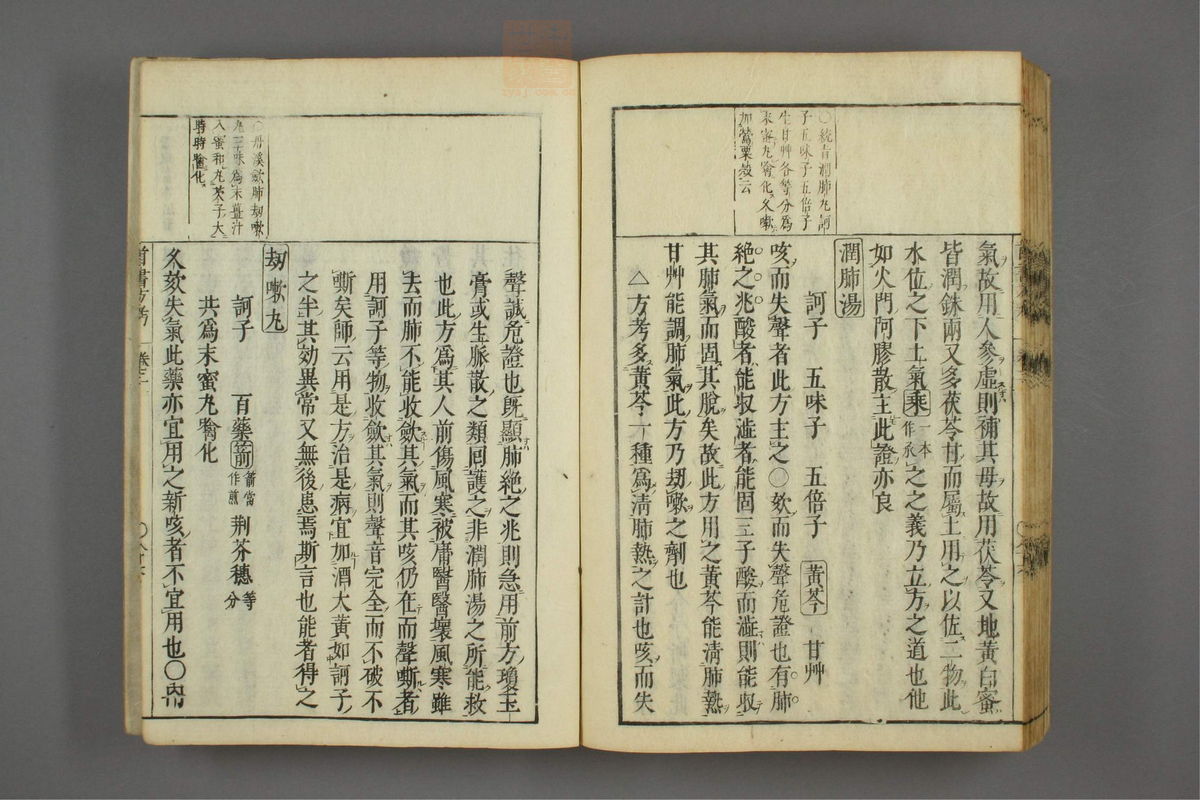 ○統旨潤肺丸訶
子五味子五倍子
生甘艸各等分爲
末蜜丸噙化久嗽
加罌粟殻云
氣故用人參虛則補其母故用茯苓又地黃白蜜
皆潤銖兩又多茯苓甘而屬土用之以佐二物此
水位之下土氣乘一本作承之之義乃立方之道也他
如火門阿膠散主此證亦良
潤肺湯
訶子 五味子 五倍子 黃芩 甘艸
咳而失聲者此方主之○欬而失聲危證也有肺
絶之兆酸者能収澁者能固三子酸而澁則能収
其肺氣而固其脫矣故此方用之黃芩能淸肺熱
甘艸能調肺氣此方乃刼嗽之劑也
△方考多黃芩一種爲淸肺熱之計也咳而失
○丹溪歛肺刼嗽
丸三味爲末薑汁
入蜜和丸芡子大
時時噙化
聲誠危證也旣顯肺絶之兆則急用前方瓊玉
膏或生脈散之類囘護之非潤肺湯之所能救
也此方爲其人前傷風寒被庸醫醫壞風寒雖
去而肺不能收歛其氣而其咳仍在而聲嘶者
用訶子等物收歛其氣則聲音完全而不破不
嘶矣師云用是方治是病宜加酒大黃如訶子
之半其効異常又無後患焉斯言也能者得之
刼嗽丸
訶子 百藥葥葥當作煎 荆芥穗等分
共爲末蜜丸噙化
久欬失氣此藥亦宜用之新咳者不宜用也○內